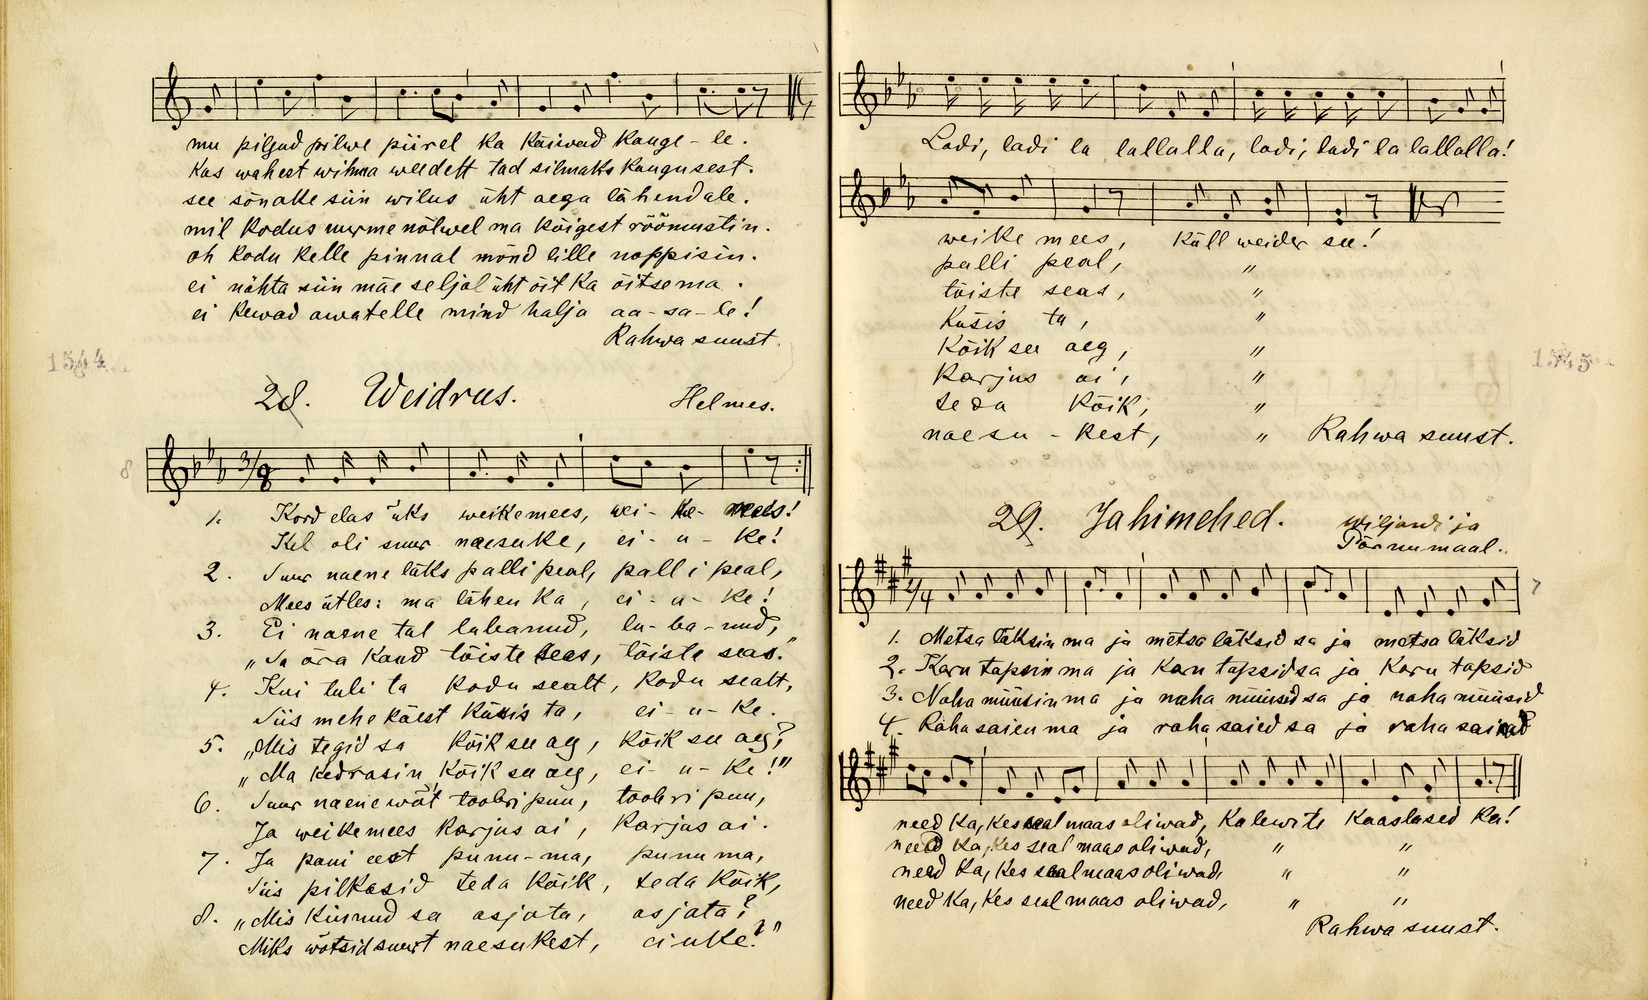 mu pilgud pilwe piirel ka käiwad kauge-le.
Kas wahest wihma weedelt tad silmaks kaugusest.
see sõnake siin wilus üht aega lähendale.
mil kodus nurme nõlwel ma kõigest rõõmustin.
oh kodu kelle pinnal mõnd lille noppisin.
ei nähta siin mäe seljal üht õit ka õitsema.
ei kewad awatelle mind halja aa-sa-le!
Rahwa suust.
1544
28. Weidrus. Helmes.
8
3/8
1. Kord elas üks weikemees, wei-ke-mees!
Kel oli suur naesuke, ei-u-ke!
2. Suur naene läks palli peal, palli peal,
Mees ütles: ma lähen ka, ei-u-ke!
3. Ei naene tal lubanud, lu-ba-nud,
„Sa ära kaud tõiste seas, tõiste seas."
4. Kui tuli ta kodu sealt, kodu sealt,
Siis mehe käest küsis ta, ei-u-ke.
5. „Mis tegid sa kõik see aeg, kõik see aeg?
„Ma kedrasin kõik see aeg, ei-u-ke!"
6. Suur naene wõt toobri puu, toobri puu,
Ja weikemees karjus ai, karjus ai.
7. Ja pani eest punu-ma, punuma,
Siis pilkasid teda kõik, teda kõik,
8. „Mis kiunud sa asjata, asjata?
Miks wõtsid suurt naesukest, eiuke?"
Ladi, ladi la lallalla, ladi, ladi la lallalla!
weike mees, küll weider see!
palli peal, "
tõiste seas, "
küsis ta, "
kõik see aeg, "
karjus ai, "
teda kõik, "
naesu-kest, " Rahwa suust.
1545
29. Jahimehed. Wiljandi ja
Pärnumaal.
2/4
7
1. Metsa läksin ma ja metsa läksid sa ja metsa läksid
2. Karu tapsin ma ja karu tapsid sa ja karu tapsid
3. Naha müüsin ma ja naha müüsid sa ja naha müüsid
4. Raha saien ma ja raha saied sa ja raha saiwad
need ka, kes seal maas oliwad, Kalewite kaaslased ka!
need ka, kes seal maas oliwad, " "
need ka, kes seal maas oliwad, " "
need ka, kes seal maas oliwad, " "
Rahwa suust.